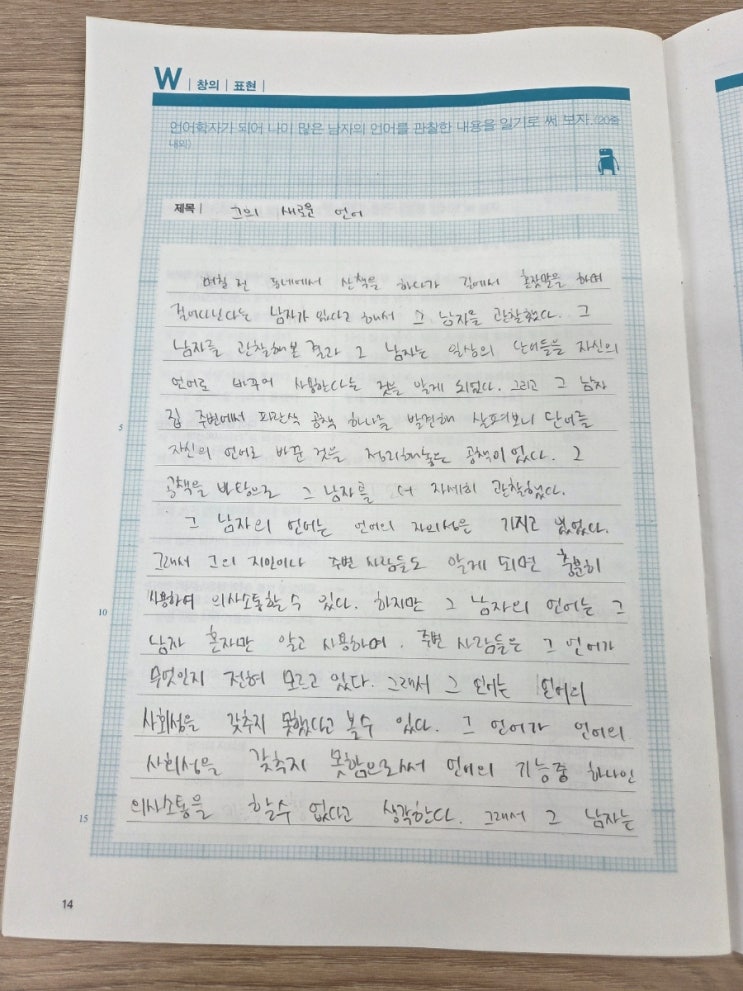 W | 창의 | 표현 |
언어학자가 되어 나이 많은 남자의 언어를 관찰한 내용을 일기로 써 보자. (20줄
내외)
제목 | 그의 새로운 언어
며칠 전 동네에서 산책을 하다가 길에서 혼잣말을 하며
걸어다닌다는 남자가 있다고 해서 그 남자을 관찰했다. 그
남자를 관찰해본 결과 그 남자는 일상의 단어들을 자신의
언어로 바꾸어 사용한다는 것을 알게 되었다. 그리고 그 남자
집 주변에서 파란색 공책 하나를 발견해 살펴보니 단어를
5
자신의 언어로 바꾼 것을 정리해놓은 공책이었다. 그
공책을 바탕으로 그 남자를 더 자세히 관찰했다.
그 남자의 언어는 언어의 자의성은 가지고 있었다.
그래서 그의 지인이나 주변 사람들도 알게 되면 충분히
사용하여 의사소통할 수 있다. 하지만 그 남자의 언어는 그
10
남자 혼자만 알고 사용하며, 주변 사람들은 그 언어가
무엇인지 전혀 모르고 있다. 그래서 그 언어는 언어의
사회성을 갖추지 못했다고 볼수 있다. 그 언어가 언어의
사회성을 갖추지 못함으로써 언어의 기능중 하나인
의사소통을 할수 없다고 생각한다. 그래서 그 남자는
15
14